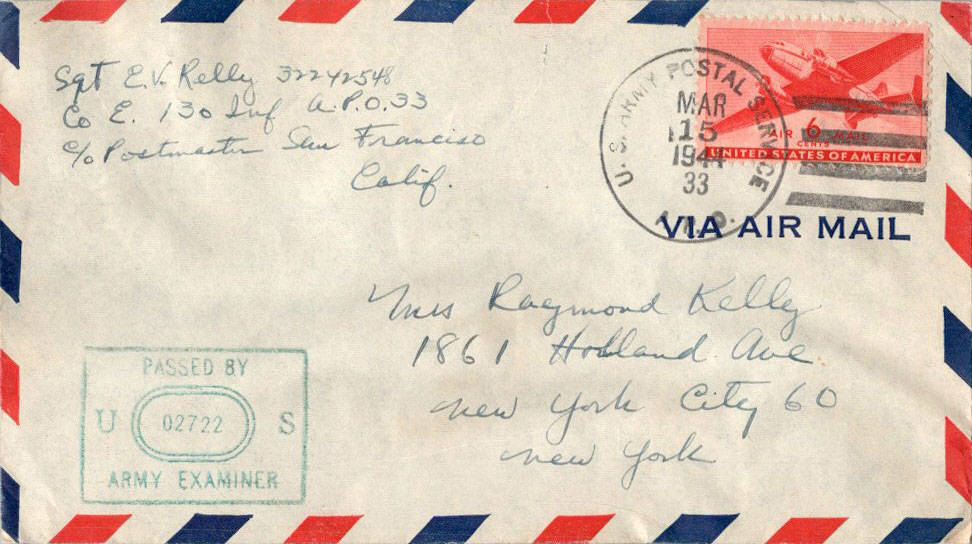 Sgt E.V. Kelly 32242548
Co E. 130 Inf A.P.O. 33
c/o Postmaster San Francisco
Calif.
U.S. ARMY POSTAL SERVICE
MAR
15
1944
33
A.P.O.
AIR 6 MAIL
CENTS
UNITED STATES OF AMERICA
VIA AIR MAIL
Mrs Raymond Kelly
1861 Holland Ave
New York City 60
New York
PASSED BY
U 02722 S
ARMY EXAMINER